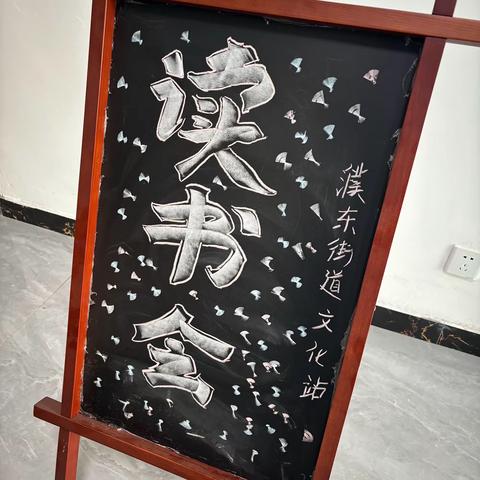 读书会
濮东街道文化站